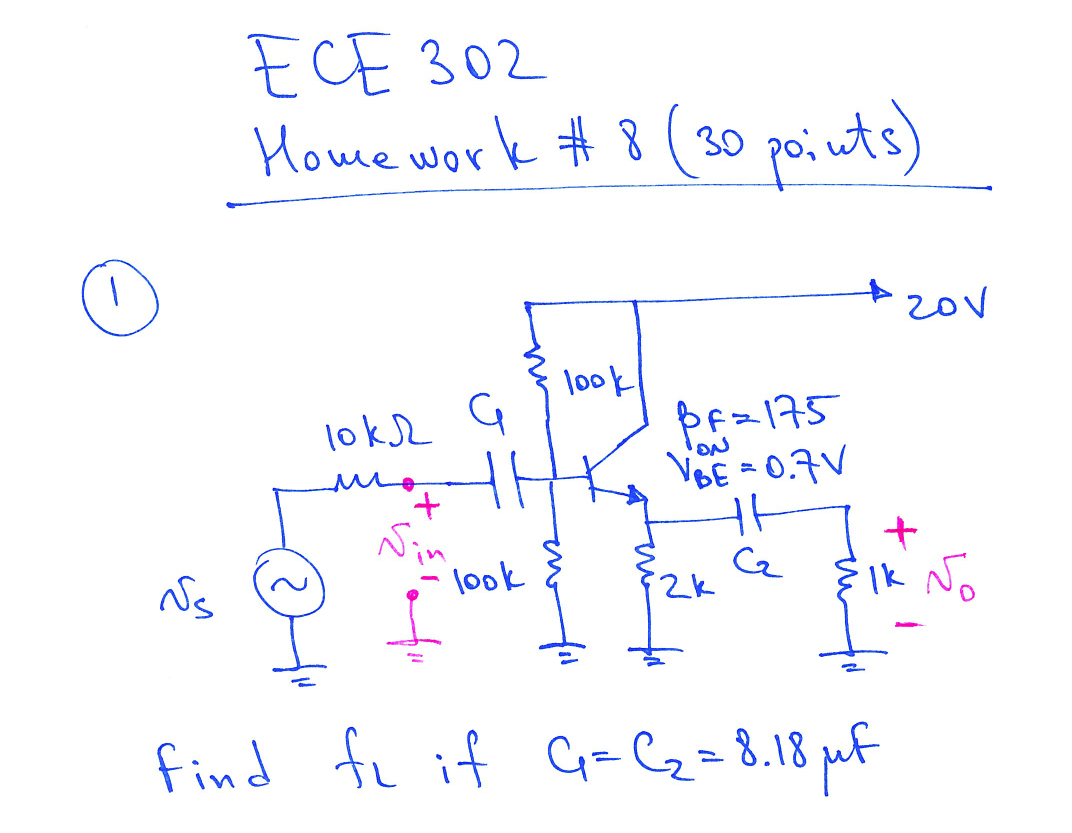 ECE 302
Homework # 8 (30 points)
1
20V
100k
βF=175
VBE ON = 0.7V
10kΩ
C1
+
Vin
-
100k
Vs
2k
C2
1k
+
Vo
-
Find fL if C1=C2=8.18 μf